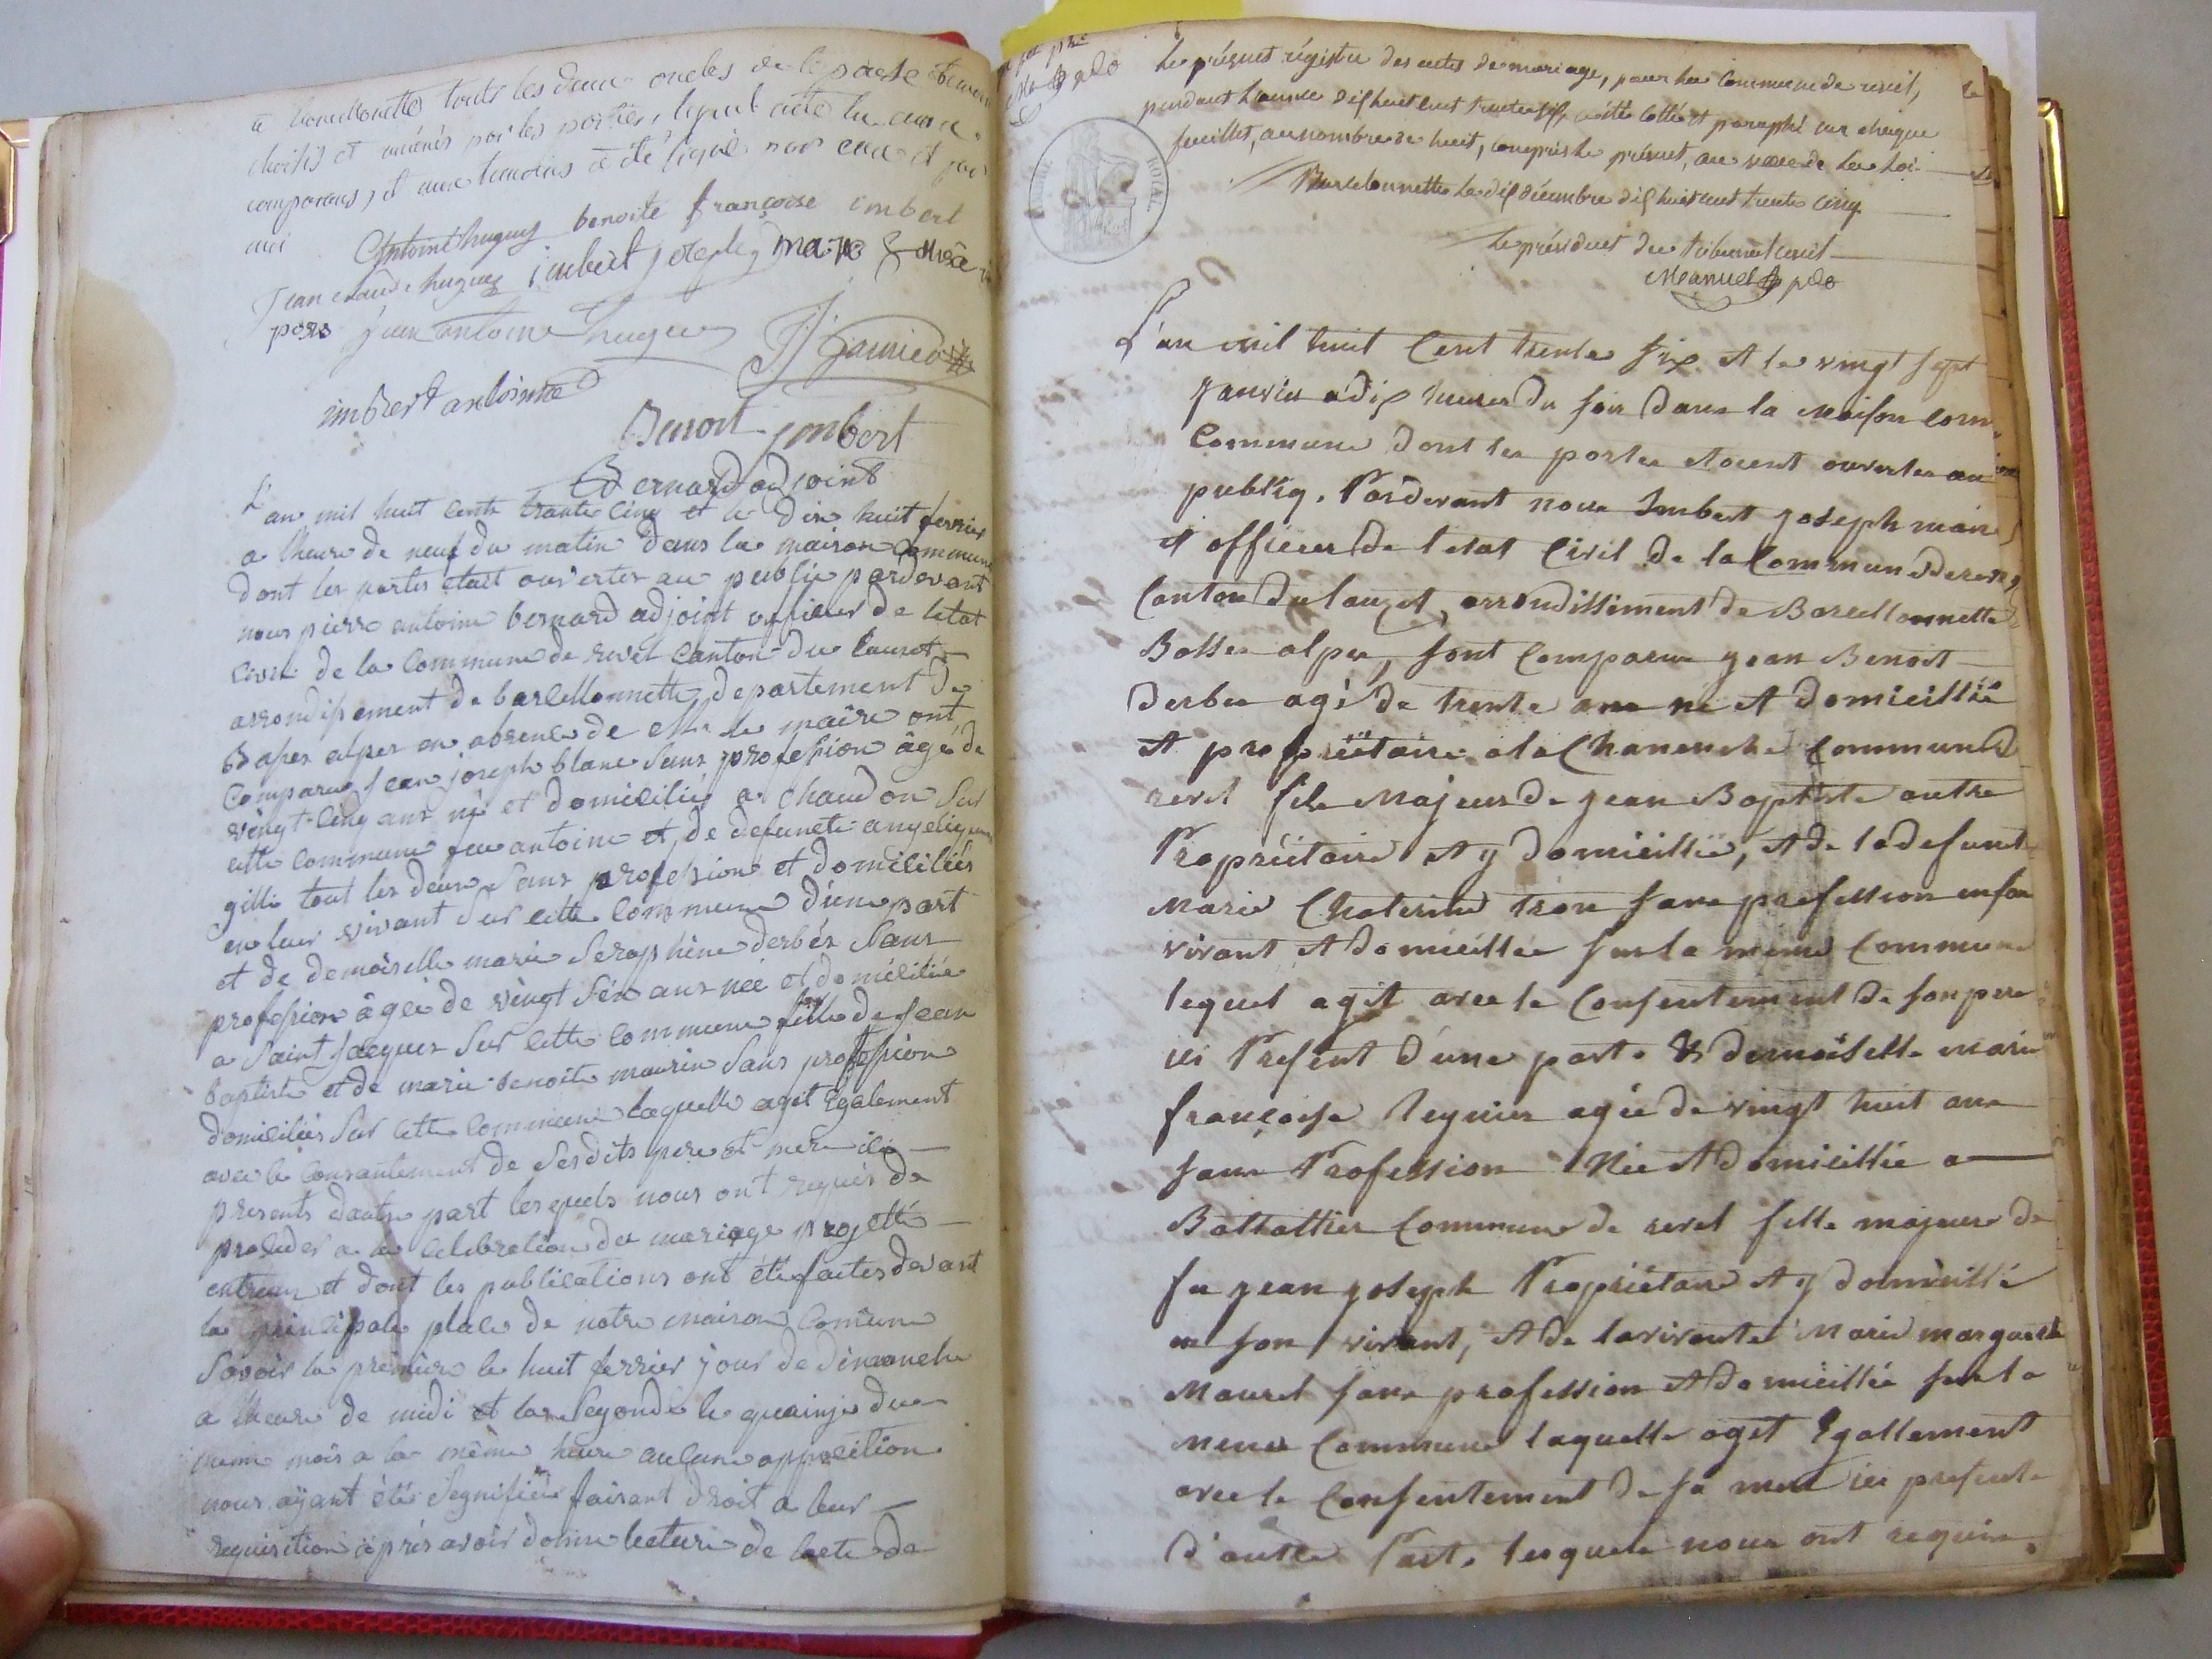 à Barcellonette touts les deux oncles de
choisis et amenés par les parties, lequel acte
comparens, et aux temoins a été signé par eux et par
moi
Antoine hugues benoite françoise imbert
Jean claude hugues imbert joseph maire
pons jean antoine hugues JJ Garnier
imbert antoinne
Benoit imbert
Bernard adjoint
L'an mil huit cents trante cinq et le dix huit fevrier
a lheure de neuf du matin dans la maison commune
dont les portes etait ouvertes au public pardevant
nous pierre antoine bernard adjoint officier de letat
civil de la commune de revel canton du lauzet
arrondissement de barcellonnette departement des
Basses alpes en absence de Mr le maire ont
comparus jean joseph blanc sans profession âgé de
vingt cinq ans né et domicilié a chaudon sur
cette commune feu antoine et de defuncte angelique
gilli tout les deux sans profession et domiciliés
en leur vivant sur cette commune d'une part
et de demoiselle marie seraphine derbés sans
profession âgée de vingt six ans née et domiciliée
a Saint Jacques sur cette commune fille de jean
baptiste et de marie benoite maurin sans profession
domiciliés sur cette commune laquelle agit également
avec le consantement de sesdits pere et mere ici
presents dautre part lesquels nous ont requis de
proceder a la celebration du mariage projetté
entreeux et dont les publications ont été faites devant
la principale place de notre maison comune
Savoir la premiere le huit fevrier jour de dimanche
a lheure de midi et la segonde le quainze du
meme mois a la même heure aucune opposition
nous ayant été segnifiée faisant droit a leur
requisition après avoir donne lecture de lacte de
Le présent régistre des actes de mariage, pour la commune de revel,
pendant l'année dix huit cent trente six, a été cotté et paraphé sur chaque
feuillet, au nombre de huit, compris le présent, au vœu de la loi
Barcelonnette le dix décembre dix huit cent trente cinq
le président du tribunal civil
Manuel
L'an mil huit cent trente six et le vingt sept
janvier a dix heures du soir dans la maison com
commune dont les portes etoient ouvertes au
publiq. Pardevant nous Imbert joseph maire
et officier de l'etat civil de la commune de revel
canton du lauzet, arrondissement de Barcellonnette
Basses alpes, sont comparus jean Benoit
Derbes agé de trente ans né et domicillié
et propriétaire a la Chanenche commune
revel fils majeur de jean Baptiste autre
Propriétaire et y domicillié, et de la defunte
marie Chaterine tron sans profession en son
vivant et domicillée sur la meme commune
lequel agit avec le consentement de son pere
ici Present d'une part. & demoiselle marie
françoise leguier agée de vingt huit ans
sans Profession Née et domicillée a
Battattier commune de revel fille majeure de
fu jean joseph Propriétaire et y domicillié
en son vivant, et de la vivante Marie marguerite
Maurel sans profession et domicillée sur la
meme commune laquelle agit Egallement
avec le consentement de sa mere ici presente
d'autre Part. lesquels nous ont requis